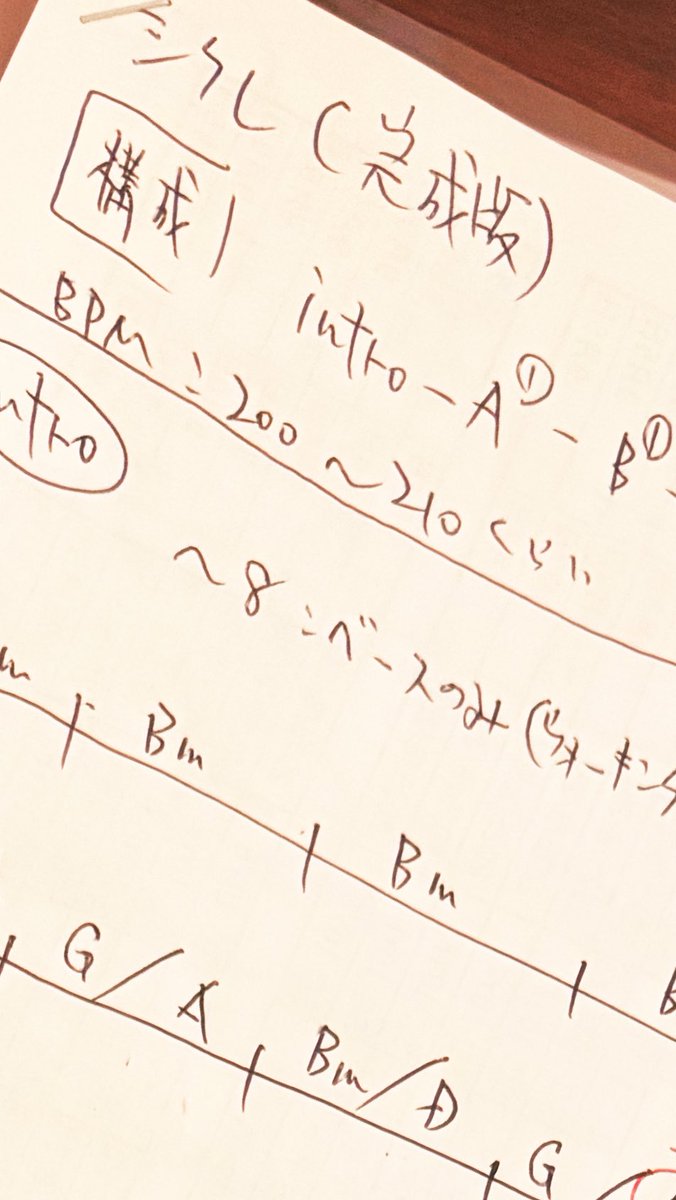 (完成版)
構成
intro - A① - B① -
BPM : 200 〜 210 くらい
intro
〜8 : ベースのみ (ウォーキング
m | Bm | Bm | B
G/A | Bm/D | G